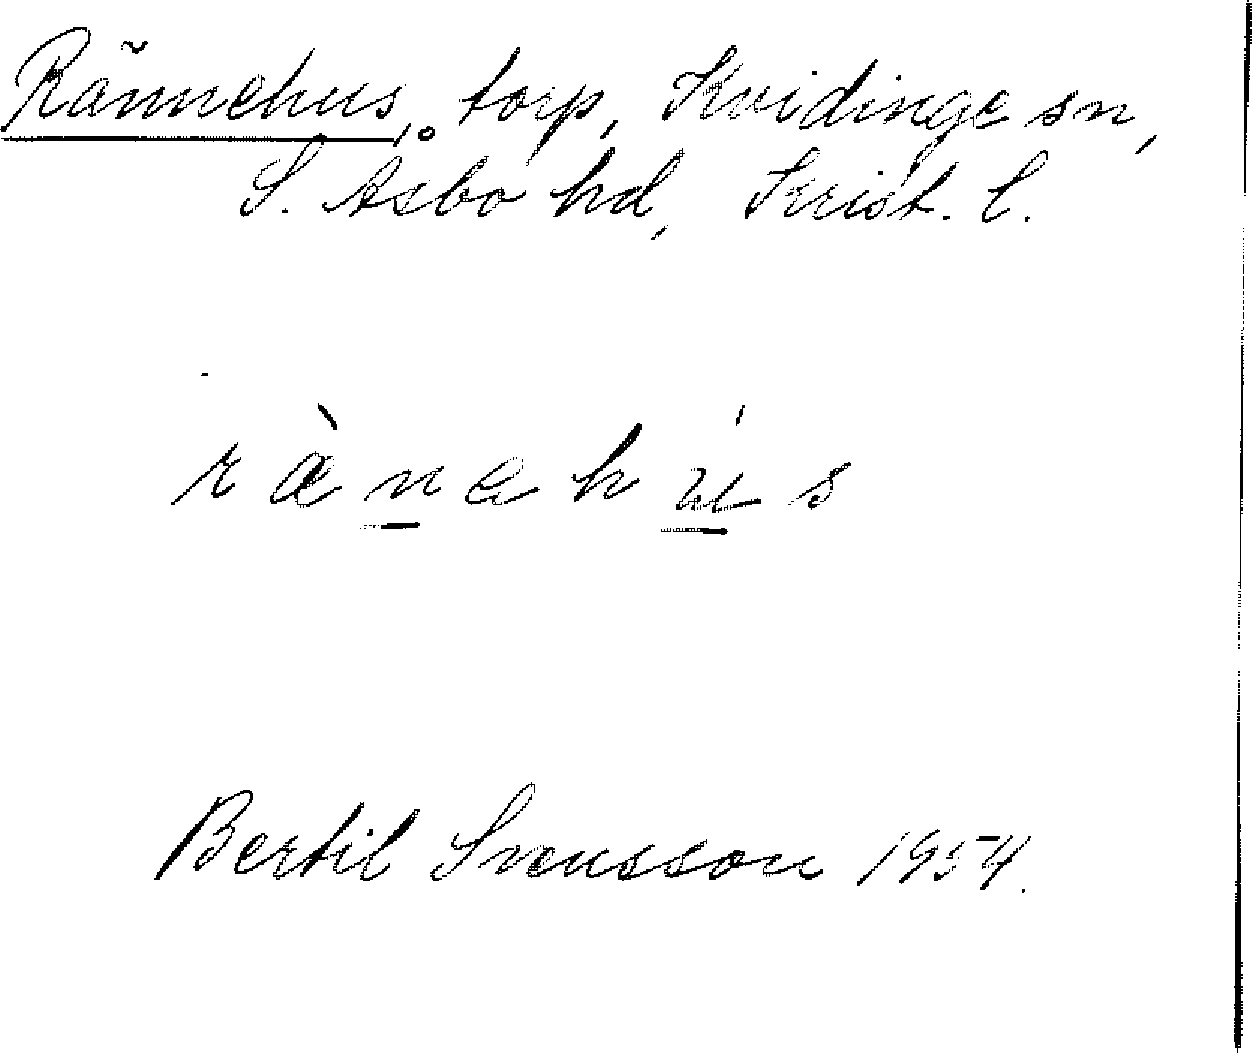 Rännehus, torp, Kvidinge sn,
S. Åsbo hd, Krist. l.
ræ̀nehús
Bertil Svensson 1954.